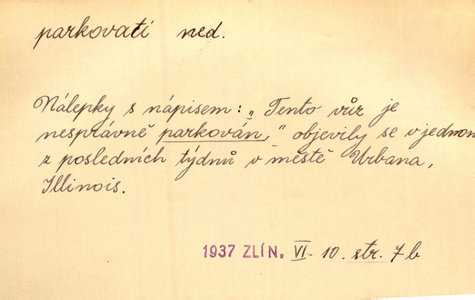 parkovati ned.
Nálepky s nápisem: „Tento vůz je
nesprávně parkován,“ objevily se v jednom
z posledních týdnů v městě Urbana,
Illinois.
1937 ZLÍN. VI. 10. str. 7b